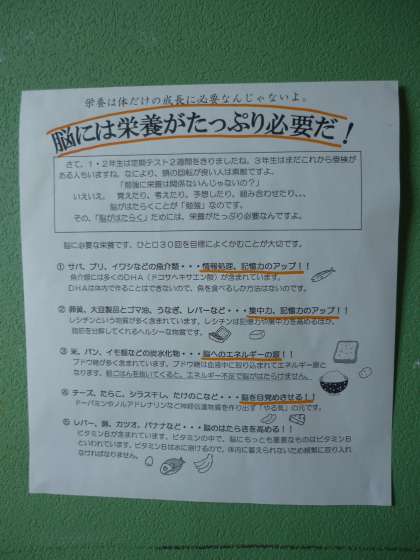 栄養は体だけの成長に必要なんじゃないよ。
脳には栄養がたっぷり必要だ！
さて、1・2年生は定期テスト2週間をきりましたね。3年生はまだこれから受検が
ある人もいますね。なにより、頭の回転が良い人は素敵ですよ。
「勉強に栄養は関係ないんじゃないの？」
いえいえ。覚えたり、考えたり、予想したり、組み合わせたり、、、
脳がはたらくことが「勉強」なのです。
その、「脳がはたらく」ためには、栄養がたっぷり必要なんですよ。
脳に必要な栄養です。ひと口30回を目標によくかむことが大切です。
① サバ、ブリ、イワシなどの魚介類・・・情報処理、記憶力のアップ！！
魚介類には多くのDHA（ドコサヘキサエン酸）が含まれています。
DHAは体内で作ることはできないので、魚を食べるしか方法はないのです。
② 卵黄、大豆製品とゴマ油、うなぎ、レバーなど・・・集中力、記憶力のアップ！！
レシチンという物質が多く含まれています。レシチンは記憶力や集中力を高めるほか、
脂肪を分解してくれるヘルシーな物質です。
③ 米、パン、イモ類などの炭水化物・・・脳へのエネルギーの源！！
ブドウ糖が多く含まれています。ブドウ糖は血液中に取り込まれてエネルギー源と
なります。朝ごはんを抜いてくると、エネルギー不足で脳がはたらけません。
④ チーズ、たらこ、シラス干し、たけのこなど・・・脳を目覚めさせる！！
ドーパミンやノルアドレナリンなど神経伝達物質を作り出す「やる気」の元です。
⑤ レバー、卵、カツオ、バナナなど・・・脳のはたらきを高める！！
ビタミンBが含まれています。ビタミンの中で、脳にもっとも重要なものはビタミンB
といわれています。ビタミンBは水に溶けるので、体内に蓄えられないため頻繁に取り入れ
なければなりません。